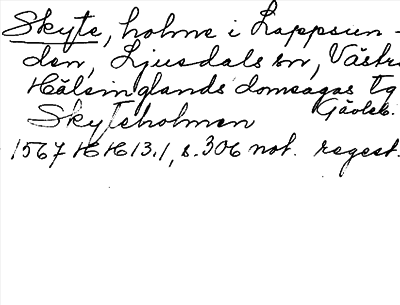 Skyte, holme i Lappsun-
den, Ljusdals sn, Västra
Hälsinglands domsagas tg
Gävleb.
Skyteholmen
1567 HH 13.1, s. 306 not. regest.